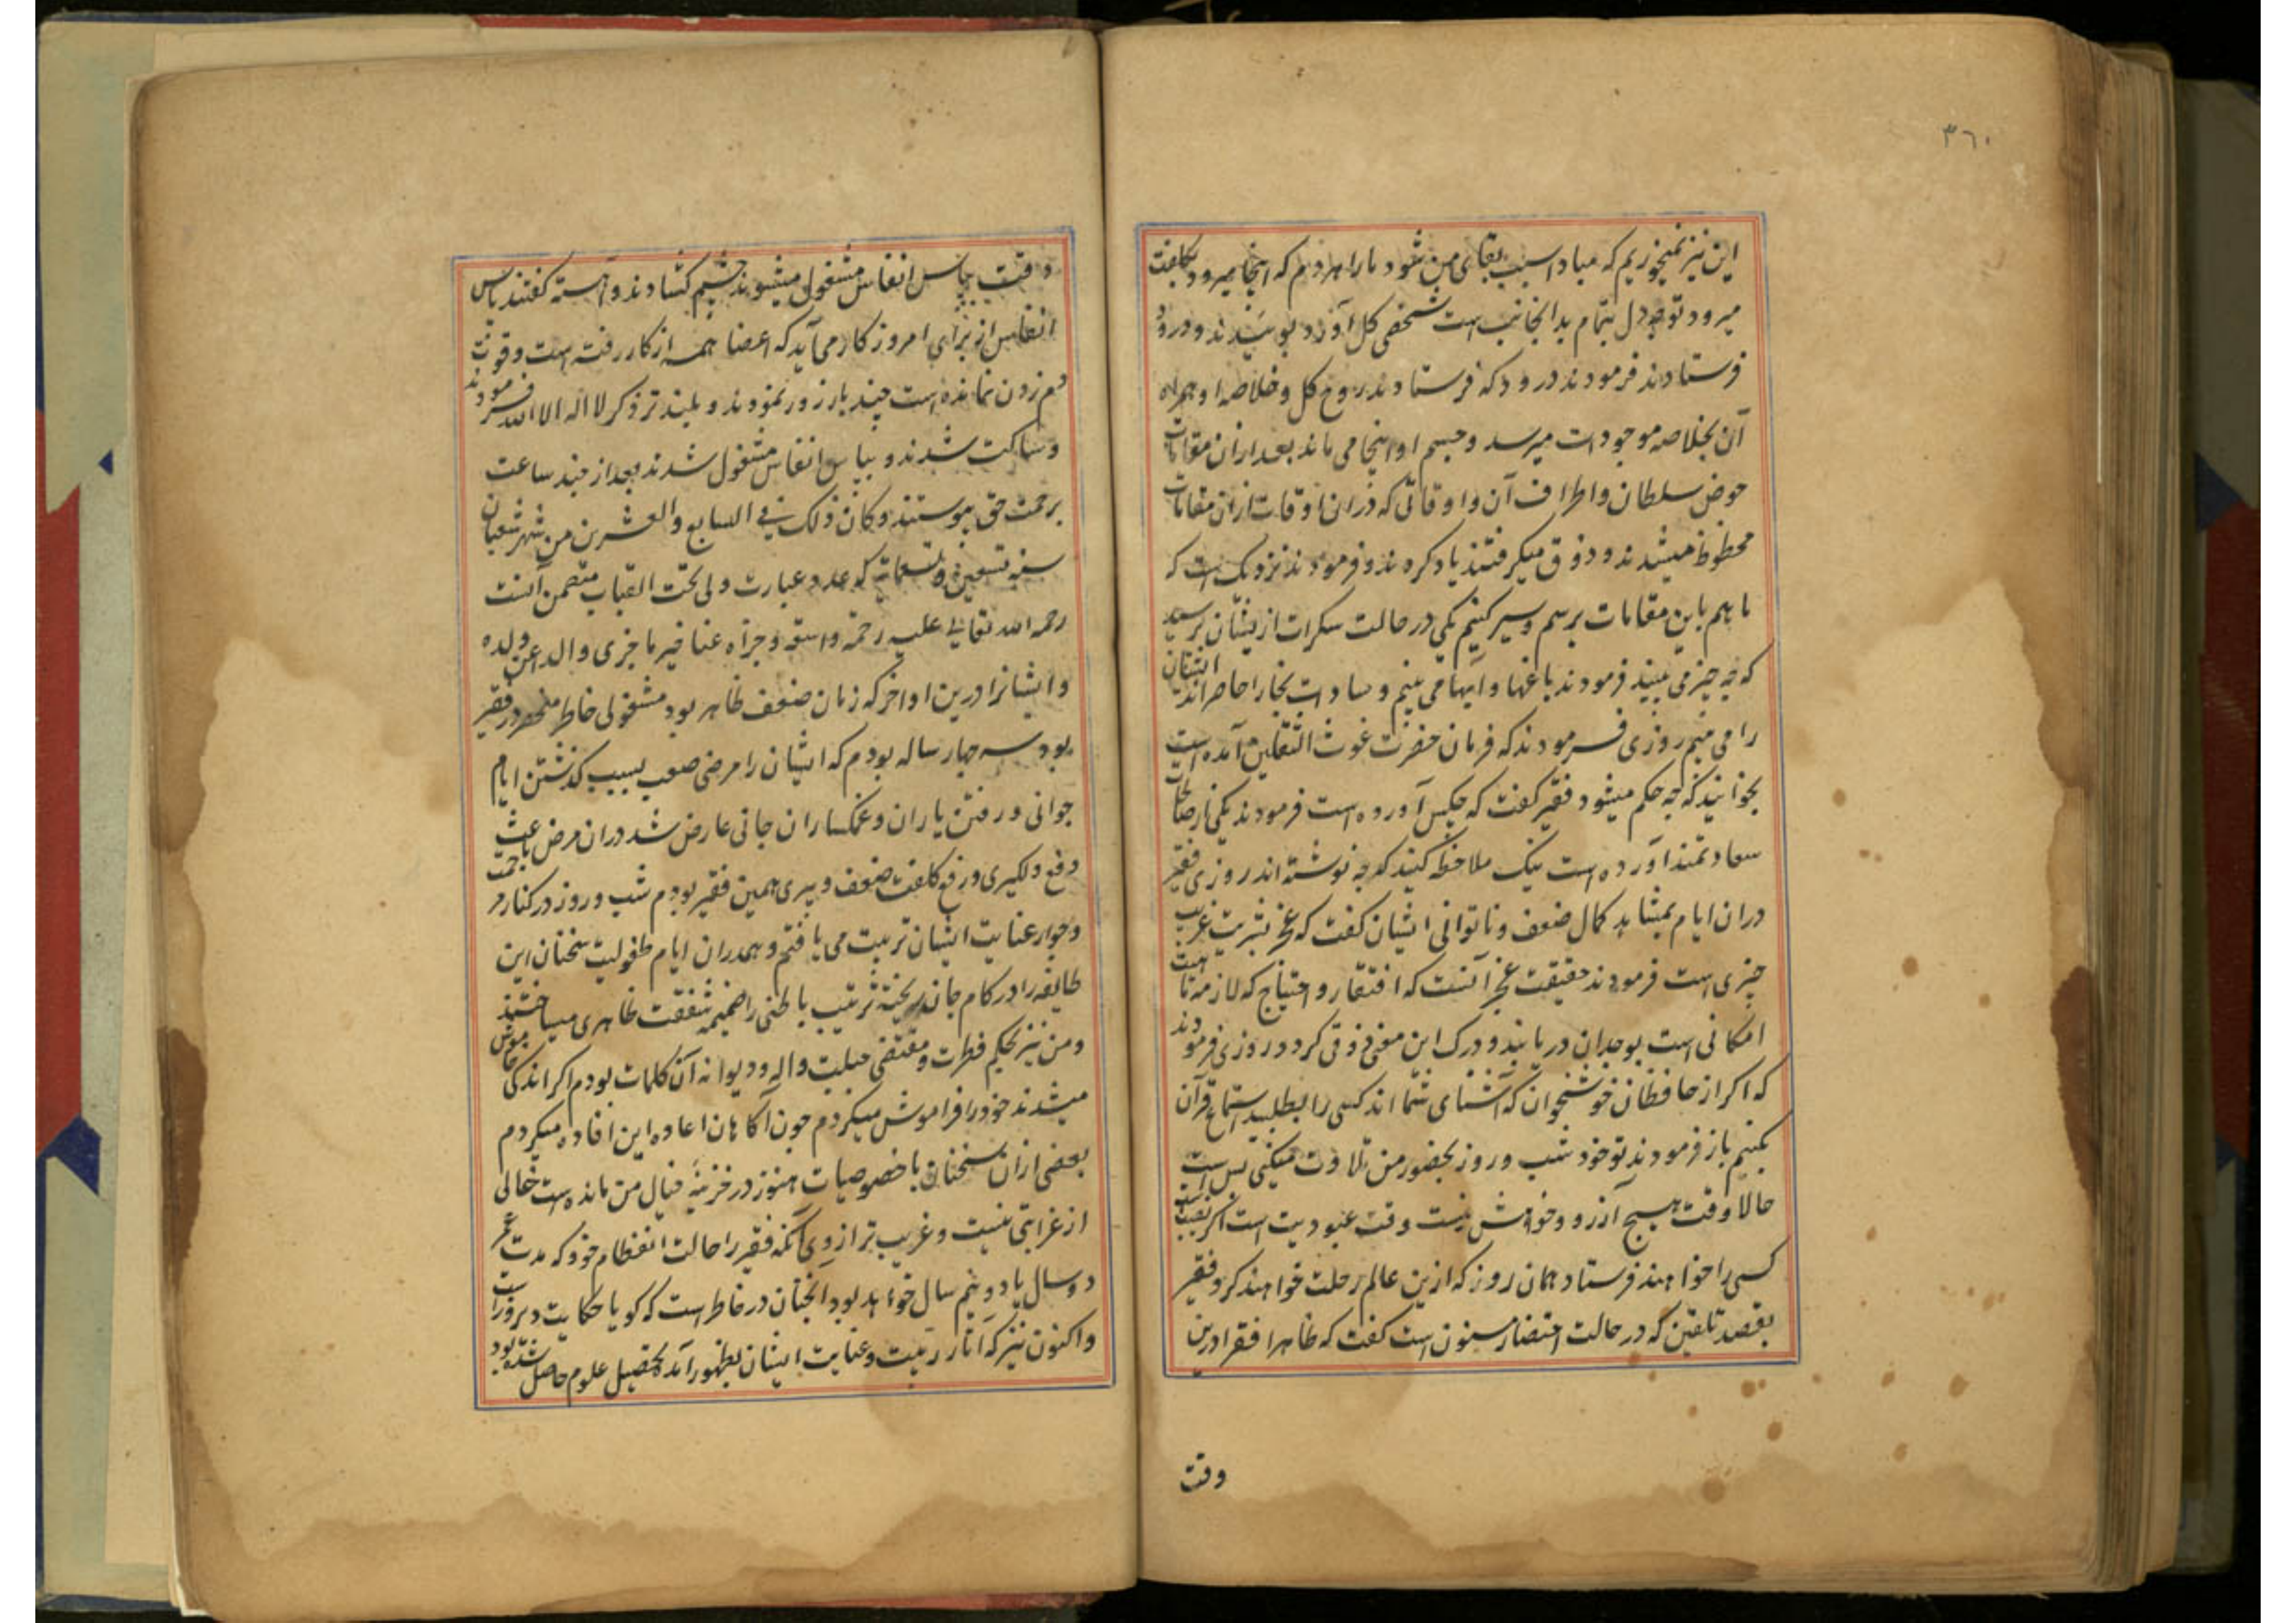 ۳۶۰
این نیز نمیخوریم که مبادا سبب بقای من شود ما را هر دم که اینجا میرود بکلفت
میرود توجه دل بتمام بدانجانب است شخصی کل آورد بوئیدند و درود
فرستادند فرمودند درود که فرستادند روح کل و خلاصه او همراه
آن بخلاصه موجودات میرسد و جسم او اینجا می ماند بعد ازان مقامات
حوض سلطان و اطراف آن و اوقاتی که دران اوقات ازان مقامات
محظوظ میشدند و ذوق میکرفتند یاد کردند و فرمودند نزدیک است که
ما هم باین مقامات برسم و سیر کنیم یکی در حالت سکرات ازیشان پرسید
که چه چیز می بینید فرمودند باغها و آبها می بینم و سادات بخارا حاضر اند ایشان
را می بینم روزی فرمودند که فرمان حضرت غوث الثقلین آمده است
بخوانید که چه حکم میشود فقیر کفت که چکس آورده است فرمودند یکی از صلحا
سعادتمند آورده است نیک ملاحظه کنید که چه نوشته اند روزی فقیر
دران ایام بمشاهد کمال ضعف و ناتوانی ایشان کفت که عجز بشریت غریب
چیزی است فرمودند حقیقت عجز آنست که افتقار و احتیاج که لازمه
امکانی است بوجدان دریابند و درک این معنی ذوقی کردد روزی فرمودند
که اکر از حافظان خوشخوان که آشنای شما اند کسی را بطلبید استماع قرآن
بکنیم باز فرمودند تو خود شب و روز بحضور من تلاوت میکنی بس است
حالا وقت هیچ آرزو و خواهش نیست وقت عبودیت است اکر نصیب است
کسی را خواهند فرستاد همان روز که ازین عالم رحلت خواهند کرد فقیر
بقصد تلقین که در حالت احتضار مسنون است کفت که ظاهرا فقرا درین
وقت
وقت بپاس انفاس مشغول میشوند چشم کشادند و آهسته کفتند پاس
انفاس از برای امروز کار می آید که اعضا همه از کار رفته است و قوت
دم زدن نمانده است چند بار زور نمودند و بلند تر ذکر لا اله الا الله فرمودند
و ساکت شدند و بپاس انفاس مشغول شدند بعد از چند ساعت
برحمت حق پیوستند و کان ذلک فی السابع و العشرین من شهر شعبان
سنه تسعین و تسعمایة که عدد عبارت ولی تحت القباب متضمن آنست
رحمه الله تعالی علیه رحمة واسعة و جزاه عنا خیر ما جزی والد اعن ولده
و ایشانرا درین اواخر که زمان ضعف ظاهر بود مشغولی خاطر منحصر در فقیر
بود سه چهار ساله بودم که ایشان را مرضی صعب بسبب کذشتن ایام
جوانی و رفتن یاران و غمکساران جانی عارض شد دران مرض باعث
دفع دلکیری و رفع کلفت ضعف و پیری همین فقیر بودم شب و روز در کنار مرحمت
و جوار عنایت ایشان تربیت می یافتم و همدران ایام طفولیت سخنان این
طایفه را در کام جان ریخته تربیت باطنی را ضمیمه شفقت ظاهری میساختند
و من نیز بحکم فطرت و مقتضی جبلت واله و دیوانه آن کلمات بودم اکر اندکی خاموش
میشدند خود را فراموش میکردم چون آکاهان اعاده این افاده میکردم
بعضی ازان سخنان با خصوصیات هنوز در خزینه خیال من مانده است خالی
از غرابتی نیست و غریب تر ازوی آنکه فقیر را حالت انفطام خود که مدت عمر
دو سال یا دو نیم سال خواهد بود انچنان در خاطر است که کویا حکایت دیروز است
و اکنون نیز که آثار تربیت و عنایت ایشان بظهور آمد تحصیل علوم حاصل شده بود